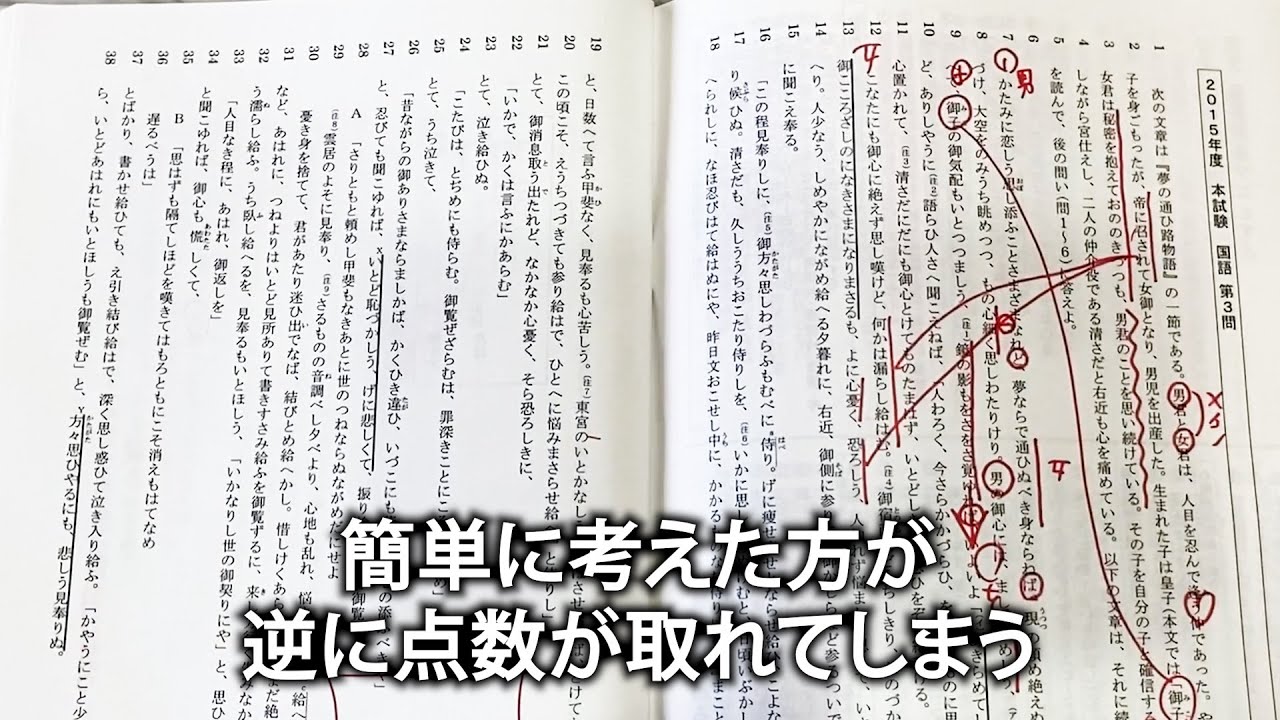 2015年度 本試験 国語 第3問
1 次の文章は『夢の通ひ路物語』の一節である。男君と女君は、人目を忍んで逢う仲であった。や
2 子を身ごもったが、帝に召されて女御となり、男児を出産した。生まれた子は皇子(本文では「御子
3 女君は秘密を抱えておののきつつも、男君のことを思い続けている。その子を自分の子と確信する
4 しながら宮仕えし、二人の仲介役である清さだと右近も心を痛めている。以下の文章は、それに続
5 を読んで、後の問い(問1〜6)に答えよ。
6
7 かたみに恋しう思し添ふことさまざまなれど、夢ならで通ひぬべき身ならねば、現の頼め絶えぬ
8 づけ、大空をのみうち眺めつつ、もの心細く思しわたりけり。男の御心には、まし
9 御子の御気配もいとつつましう、(注1)鏡の影もをさをさ覚ければ、いよいよ「あきらめて
10 ど、ありしやうに(注2)語らひ人さへ聞こえねば、「人わろく、今さらかかづらひ、
11 心置かれて、(注3)清さだにだにも御心とけてものたまはず、いとどしき
12 こなたにも御心に絶えず思し嘆けど、何かは漏らし給はむ。(注4)御宿
13 御こころざしのになきさまになりまさるも、よに心憂く、恐ろしう、人知れず悩ま
14 へり。人少なう、しめやかにながめ給へる夕暮れに、右近、御側に参り
15 に聞こえ奉る。
16 「この程見奉りしに、(注5)御方々思しわづらふもむべに侍り。げに痩せ
17 り候ひぬ。清さだも、久しううちおこたり侍りしを、(注6)いかに思し
18 へられしに、なほ忍びはて給はぬにや、昨日文おこせし中に、かかるもの
19 と、日数へて言ふ甲斐なく、見奉るも心苦しう。(注7)東宮のいとかなしう
20 この頃こそ、えうちつづきても参り給はで、ひとへに悩みまさらせ給
21 とて、御消息取う出たれど、なかなか心憂く、そら恐ろしきに、
22 「いかで、かくは言ふにかあらむ」
23 とて、泣き給ひぬ。
24 「こたびは、とぢめにも侍らむ。御覧ぜざらむは、罪深きことにこ
25 とて、うち泣きて、
26 「昔ながらの御ありさまならましかば、かくひき違ひ、いづこにも
27 と、忍びても聞こゆれば、Xいとど恥づかしう、げに悲しくて、振り
28 A 「さりともと頼めし甲斐もなきあとに世のつねならぬながめだにせよ
29 (注8)雲居のよそに見奉り、(注9)さるものの音調べし夕べより、心地も乱れ、悩
30 憂き身を捨てて、君があたり迷ひ出でなば、結びとめ給へかし。惜しけくあ
31 など、あはれに、つねよりはいとど見所ありて書きすさみ給ふを御覧ずるに、来
32 う濡らし給ふ。うち臥し給へるを、見奉るもいとほしう、「いかなりし世の御契りにや」と、思ひ
33 「人目なき程に、あはれ、御返しを」
34 と聞こゆれば、御心も慌しくて、
35 B 「思はずも隔てしほどを嘆きてはもろともにこそ消えもはてなめ
36 遅るべうは」
37 とばかり、書かせ給ひても、え引き結び給はで、深く思し惑ひて泣き入り給ふ。「かやうにこと少
38 ら、いとどあはれにもいとほしうも御覧ぜむ」と、Y方々思ひやるにも、悲しう見奉りぬ。
男
簡単に考えた方が
逆に点数が取れてしまう